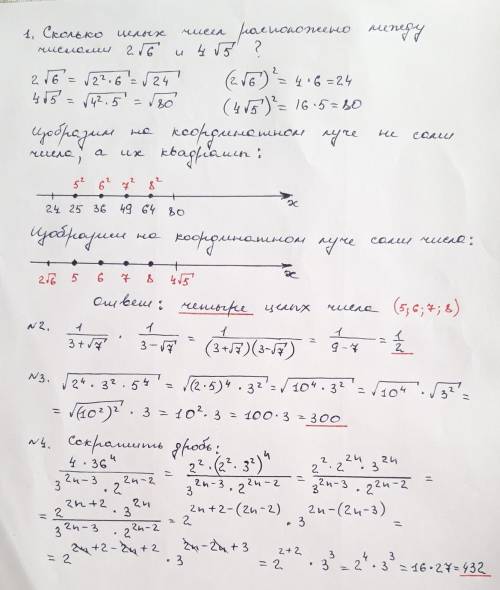 1. Сколько целых чисел расположено между
числами 2√6 и 4√5 ?
2√6 = √(2²·6) = √24    (2√6)² = 4·6 = 24
4√5 = √(4²·5) = √80    (4√5)² = 16·5 = 80
Изобразим на координатном луче не сами
числа, а их квадраты:
5² 6² 7² 8²
24 25 36 49 64 80 x
Изобразим на координатном луче сами числа:
2√6 5 6 7 8 4√5 x
Ответ: четыре целых числа (5; 6; 7; 8)
№2. 1/(3+√7) · 1/(3-√7) = 1/((3+√7)(3-√7)) = 1/(9-7) = 1/2
№3. √(2⁴·3²·5⁴) = √((2·5)⁴·3²) = √(10⁴·3²) = √(10⁴)·√(3²) =
= √((10²)²)·3 = 10²·3 = 100·3 = 300
№4. Сократить дробь:
(4·36⁴)/(3²ⁿ⁻³·2²ⁿ⁻²) = (2²·(2²·3²)⁴)/(3²ⁿ⁻³·2²ⁿ⁻²) = (2²·2²ⁿ·3²ⁿ)/(3²ⁿ⁻³·2²ⁿ⁻²) =
= (2²ⁿ⁺²·3²ⁿ)/(3²ⁿ⁻³·2²ⁿ⁻²) = 2^(2n+2-(2n-2)) · 3^(2n-(2n-3)) =
= 2^(2n+2-2n+2) · 3^(2n-2n+3) = 2²⁺²·3³ = 2⁴·3³ = 16·27 = 432